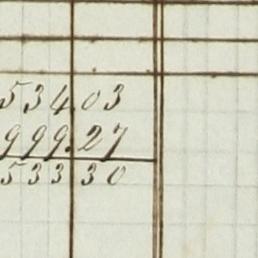 534.03
999.27
533 30